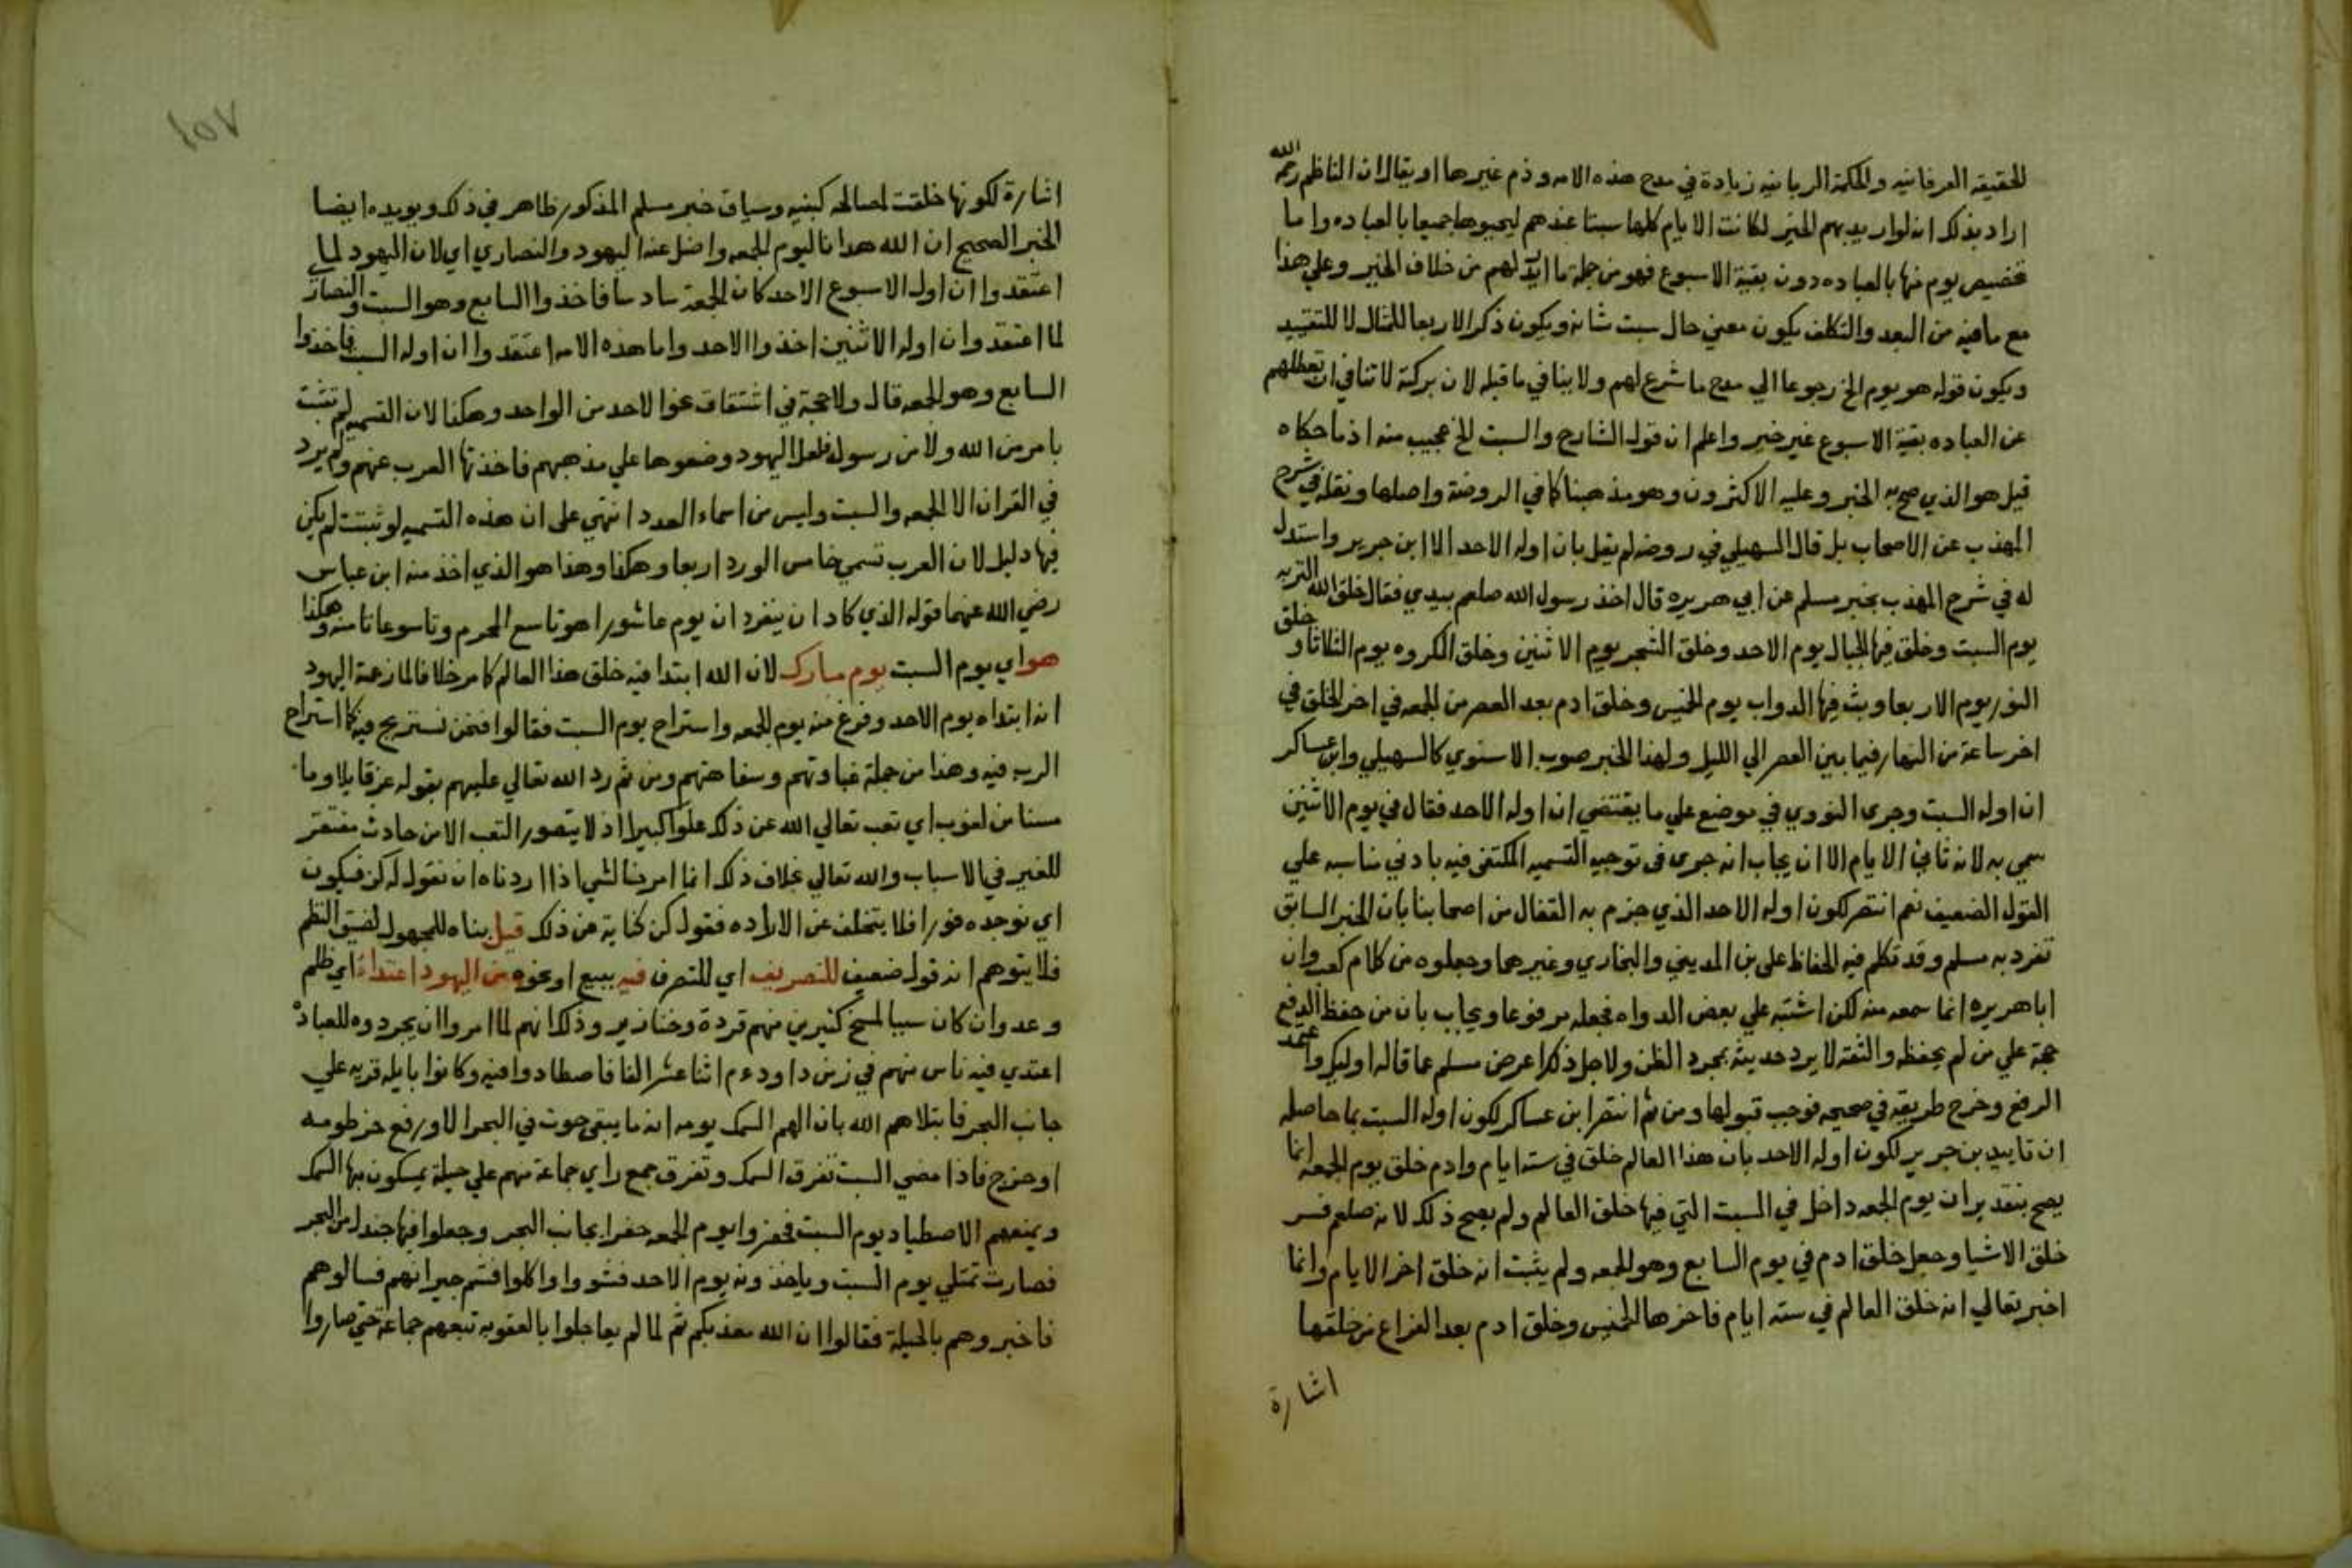 للحقيقة العرفانيه والحكمة الربانيه زيادة في مدح هذه الامه وذم غيرها او يقال ان الناظم رحمه الله
اراد بذلك انه لو اريد بهم الخير لكانت الايام كلها سبتا عندهم ليحيوها جميعا بالعباده واما
تخصيص يوم منها بالعباده دون بقية الاسبوع فهو من جملة ما لهم من خلاف الخير وعلي هذا
مع ما فيه من البعد والتكلف يكون معني حال سبت شانه ويكون ذكر الاربعا للمثال لا للتقييد
ويكون قوله هو يوم الخ رجوعا الي مدح ما شرع لهم ولا ينافي ما قبله لان بركته لا تنافي ان تعطلهم
عن العباده بقية الاسبوع غير خير واعلم ان قول الشارح والسبت الخ عجيب منه اذ ما حكاه
قيل هو الذي صح به الخبر وعليه الاكثرون وهو مذهبنا كما في الروضة واصلها ونقله في شرح
المهذب عن الاصحاب بل قال السهيلي في روضه لم يقل بان اوله الاحد الا ابن جرير واستدل
له في شرح المهذب بخبر مسلم عن ابي هريره قال اخذ رسول الله صلعم بيدي فقال خلق الله التربه
يوم السبت وخلق فيها الجبال يوم الاحد وخلق الشجر يوم الاثنين وخلق المكروه يوم الثلاثا وخلق
النور يوم الاربعا وبث فيها الدواب يوم الخميس وخلق ادم بعد العصر من الجمعه في اخر الخلق في
اخر ساعة من النهار فيما بين العصر الي الليل ولهذا الخبر صوب الاسنوي كالسهيلي وابن عساكر
ان اوله السبت وجري النووي في موضع علي ما يقتضي ان اوله الاحد فقال في يوم الاثنين
سمي به لانه ثاني الايام الا ان يجاب انه جري في توجيه التسميه المكتفي فيه بادني مناسبه علي
القول الضعيف نعم انتصر لكون اوله الاحد الذي جزم به القفال من اصحابنا بان الخبر السابق
تفرد به مسلم وقد تكلم فيه الحفاظ علي بن المديني والبخاري وغيرهما وجعلوه من كلام كعب وان
ابا هريره انما سمعه منه لكن اشتبه علي بعض الرواه فجعله مرفوعا ويجاب بان من حفظ الرفع
حجة علي من لم يحفظه والثقة لا يرد حديثه بمجرد الظن ولاجل ذلك اعرض مسلم عما قاله اوليك واعتمد
الرفع وخرج طريقه في صحيحه فوجب قبولها ومن ثم انتصر ابن عساكر لكون اوله السبت بما حاصله
ان تاييد بن جرير لكون اوله الاحد بان هذا العالم خلق في ستة ايام وادم خلق يوم الجمعه انما
يصح بتقدير ان يوم الجمعه داخل في الستة التي فيها خلق العالم ولم يصح ذلك لانه صلعم فسر
خلق الاشيا وجعل خلق ادم في يوم السابع وهو الجمعه ولم يثبت انه خلق اخر الايام وانما
اخبر تعالي انه خلق العالم في ستة ايام فاخرها الخميس وخلق ادم بعد الفراغ من خلقها
اشارة
١٥٧
اشارة لكونها خلقت لمصالحه كبنيه وسياق خبر مسلم المذكور ظاهر في ذلك ويويده ايضا
الخبر الصحيح ان الله هدانا ليوم الجمعه واضل عنه اليهود والنصاري اي لان اليهود لما
اعتقدوا ان اول الاسبوع الاحد كان الجمعة سادسا فاخذوا السابع وهو السبت والنصاري
لما اعتقدوا ان اوله الاثنين اخذوا الاحد واما هذه الامه اعتقدوا ان اوله السبت فاخذوا
السابع وهو الجمعه قال ولا حجة في اشتقاق نحو الاحد من الواحد وهكذا لان التسميه لم تثبت
بامر من الله ولا من رسوله فلعل اليهود وضعوها علي مذهبهم فاخذتها العرب عنهم ولم يرد
في القران الا الجمعه والسبت وليس من اسماء العدد انتهي علي ان هذه التسميه لو ثبتت لم يكن
فيها دليل لان العرب تسمي خامس الورد اربعا وهكذا وهذا هو الذي اخذ منه ابن عباس
رضي الله عنهما قوله الذي كاد ان ينفرد ان يوم عاشورا هو تاسع المحرم وتاسوعا ثامنه وهكذا
هو اي يوم السبت يوم مبارك لان الله ابتدا فيه خلق هذا العالم كما مر خلافا لما زعمته اليهود
انه ابتداه يوم الاحد وفرغ منه يوم الجمعه واستراح يوم السبت فقالوا فنحن نستريح فيه كما استراح
الرب فيه وهذا من جملة غباوتهم وسفاهتهم ومن ثم رد الله تعالي عليهم بقوله عز قايلا وما
مسنا من لغوب اي تعب تعالي الله عن ذلك علوا كبيرا اذ لا يتصور التعب الا من حادث مفتقر
للغير في الاسباب والله تعالي بخلاف ذلك انما امرنا لشي اذا اردناه ان نقول له كن فيكون
اي نوجده فورا فلا يتخلف عن الاراده فقول كن كناية عن ذلك قيل بناه للمجهول لضيق النظم
فلا يتوهم انه قول ضعيف للتصريف اي للتصرف فيه ببيع او نحوه من اليهود اعتداء اي ظلم
وعدوان كان سببا لمسخ كثيرين منهم قردة وخنازير وذلك انهم لما امروا ان يجردوه للعبادة
اعتدي فيه ناس منهم في زمن داود ءم اثنا عشر الفا فاصطادوا فيه وكانوا بايله قريه علي
جانب البحر فابتلاهم الله بان الهم السمك يومه انه ما يبقي حوت في البحر الا ورفع خرطومه
اوخرج فاذا مضي السبت تفرق السمك وتفرق جمع راي جماعة منهم علي حيلة يمسكون بها السمك
ويمنعهم الاصطياد يوم السبت فحفروا يوم الجمعه حفرا بجانب البحر وجعلوا فيها جندلا من البحر
فصارت تمتلي يوم السبت وياخذونه يوم الاحد فشووا واكلوا فشم جيرانهم فسالوهم
فاخبروهم بالحيلة فقالوا ان الله معذبكم ثم لما لم يعاجلوا بالعقوبه تبعهم جماعة حتي صاروا